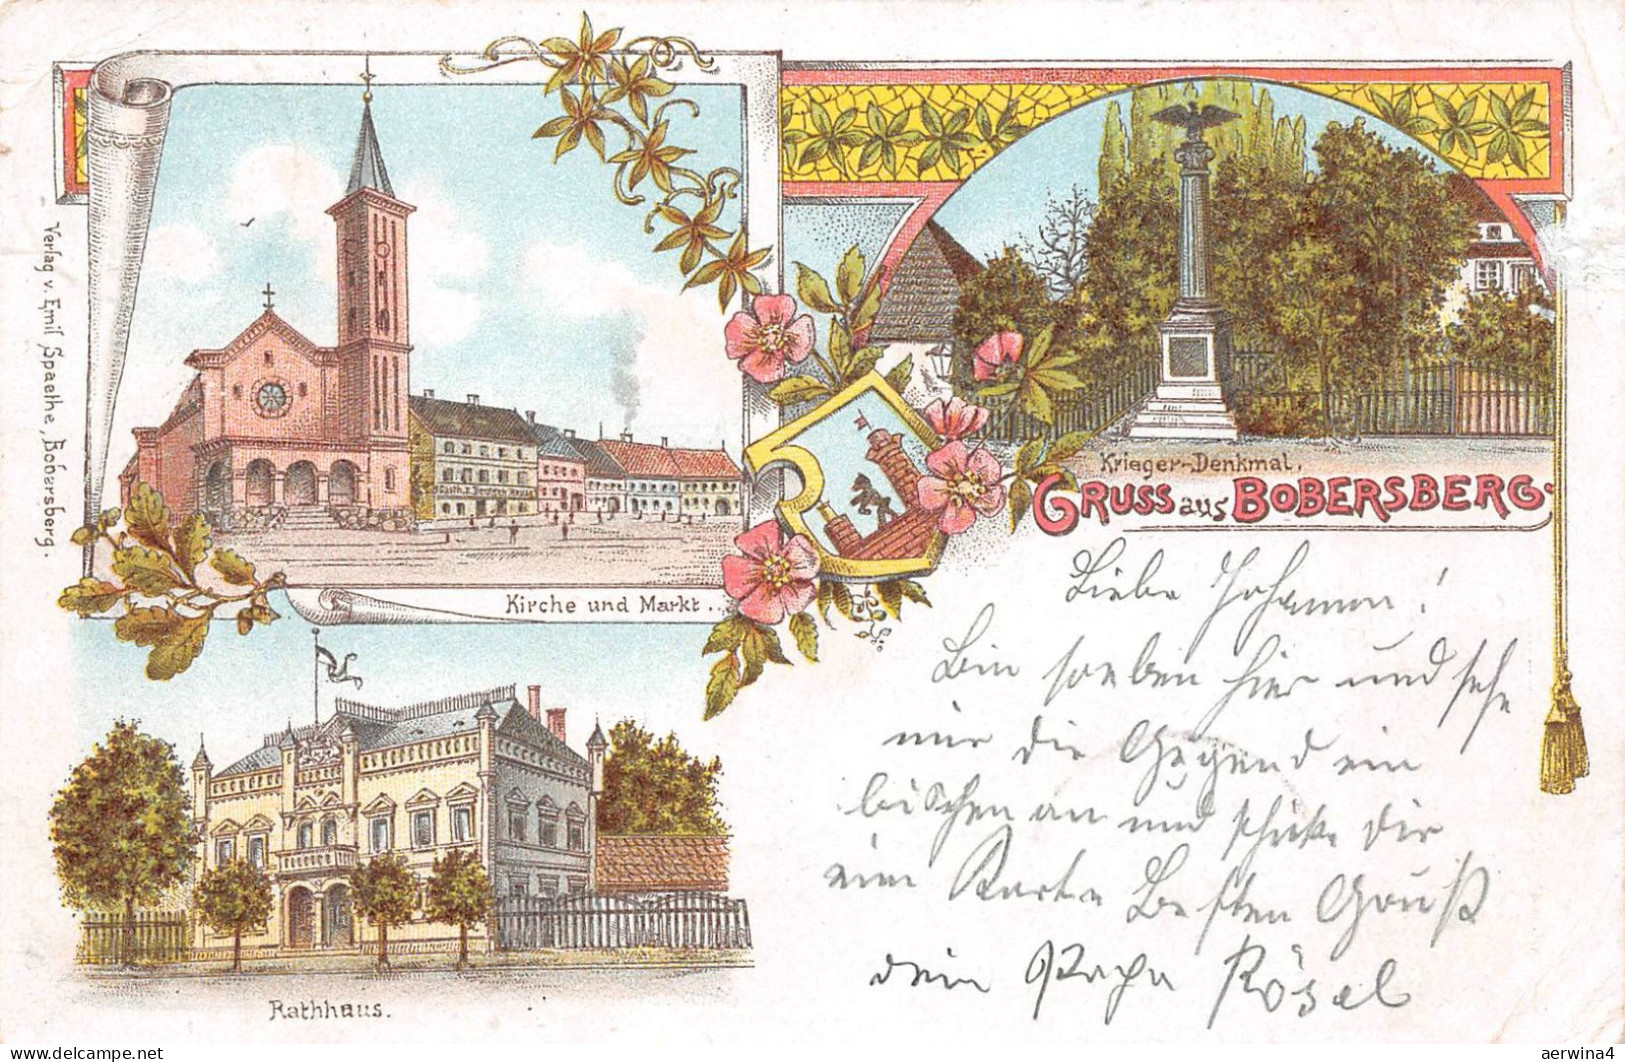 Verlag v. Emil Spaethe, Bobersberg.
Kirche und Markt.
Krieger-Denkmal.
GRUSS aus BOBERSBERG.
Liebe Johanna!
Bin soeben hier und sehe
mir die Gegend ein
bischen an und schicke Dir
eine Karte Besten Gruß
dein Papa Rösel
Rathhaus.
delcampe.net
aerwina4